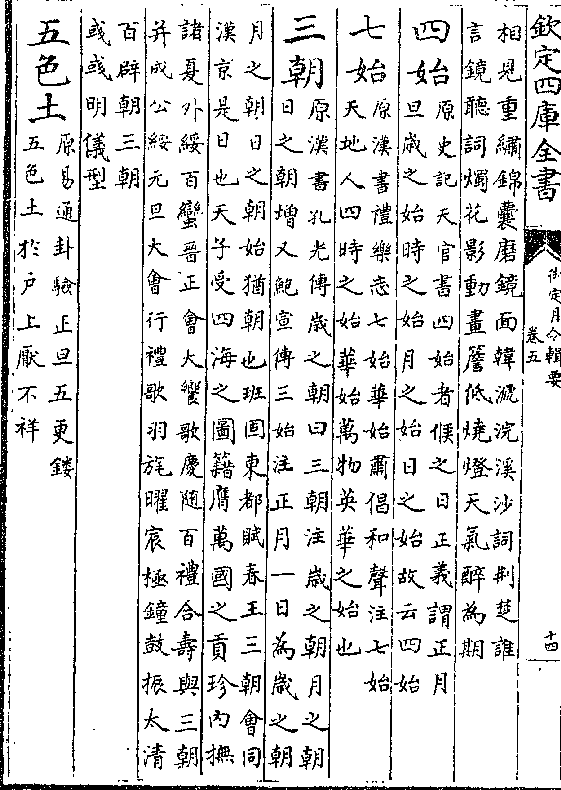 欽定四庫全書
御定月令輯要
卷五
十四
相見重繡錦囊磨鏡面韓淲浣溪沙詞荆楚誰
言鏡聽詞燭花影動畫簷低燒燈天氣醉為期
四始
原史記天官書四始者候之日正義謂正月
旦歲之始時之始月之始日之始故云四始
七始
原漢書禮樂志七始華始肅倡和聲注七始
天地人四時之始華始萬物英華之始也
三朝
原漢書孔光傳歲之朝曰三朝注歲之朝月之朝
日之朝增又鮑宣傳三始注正月一日為歲之朝
月之朝日之朝始猶朝也班固東都賦春王三朝會同
漢京是日也天子受四海之圖籍膺萬國之貢珍内撫
諸夏外綏百蠻晉正會大饗歌慶隨百禮合壽與三朝
并成公綏元旦大會行禮歌羽旄曜宸極鐘鼓振太清
百辟朝三朝
彧彧明儀型
五色土
原易通卦驗正旦五更鏤
五色土於户上厭不祥